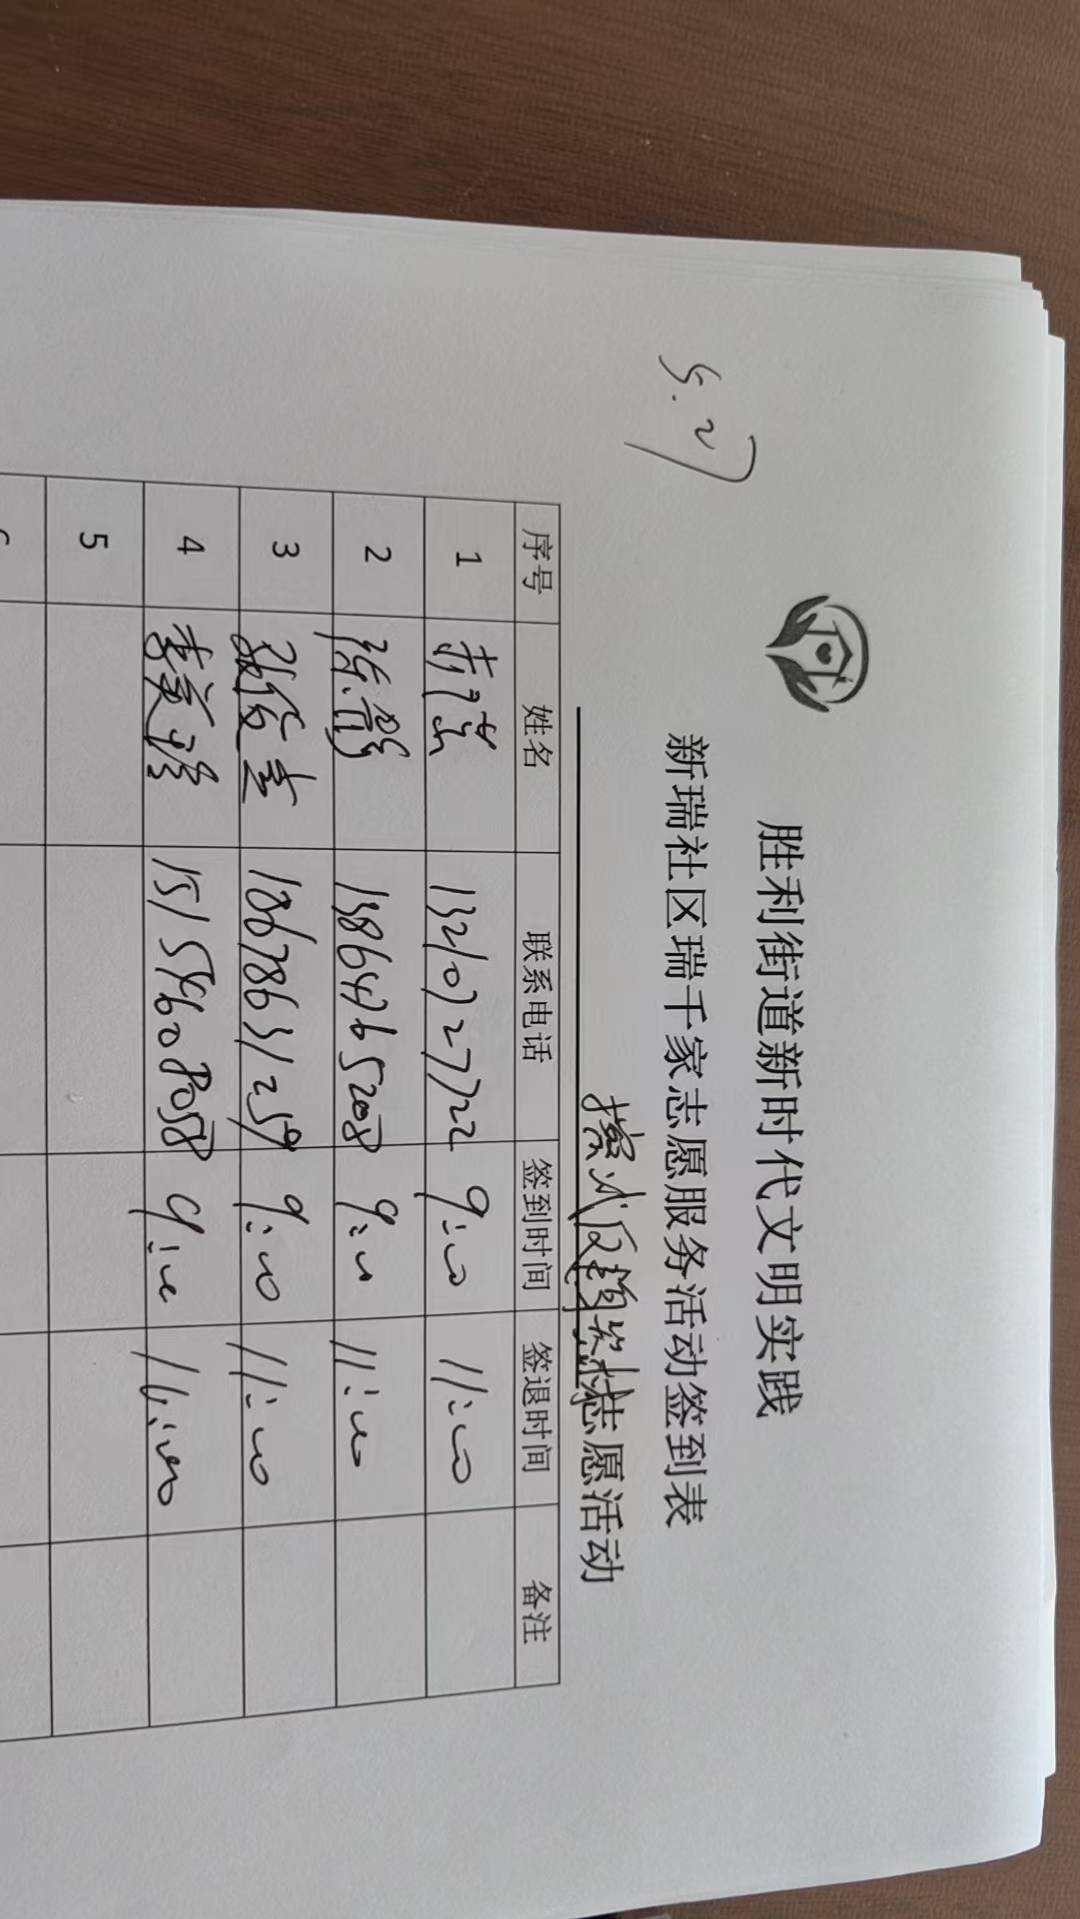 5.27
胜利街道新时代文明实践
新瑞社区瑞千家志愿服务活动签到表
志愿活动
序号 姓名 联系电话 签到时间 签退时间 备注
1 13210727722 9:00 11:00
2 陈亮 13864765208 9:00 11:00
3 张俊圭 18678631259 9:00 11:00
4 李美 15154608058 9:00 11:00
5